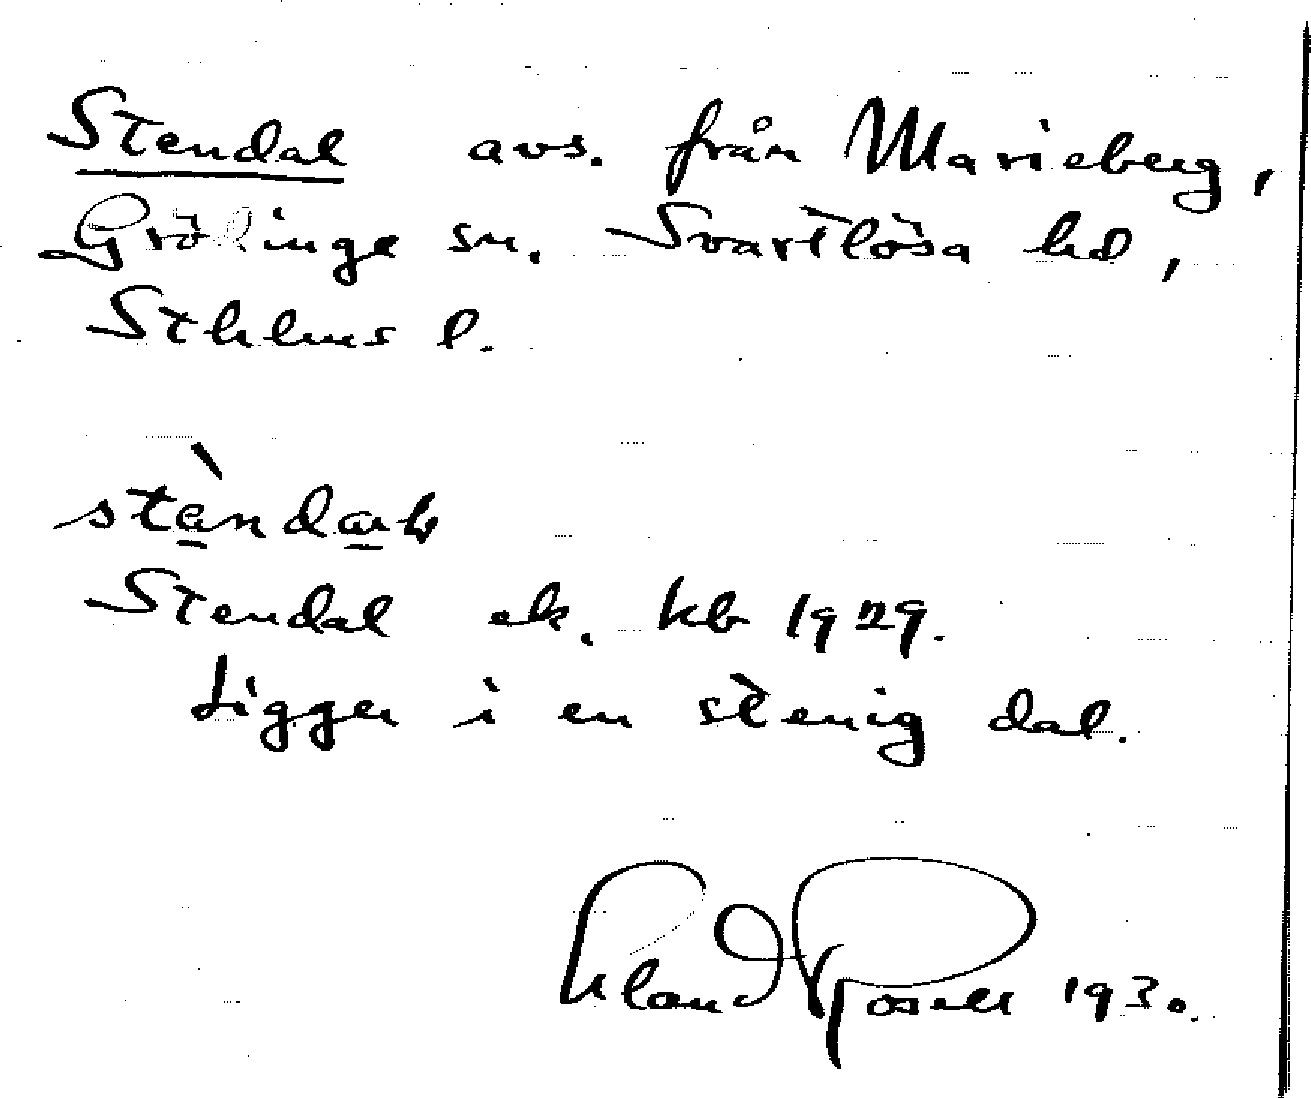 Stendal avs. från Marieberg,
Grödinge sn. Svartlösa hd,
Sthlms l.
Stendal ek. kb 1929.
Ligger i en stenig dal.
Erland Rosell 1930.